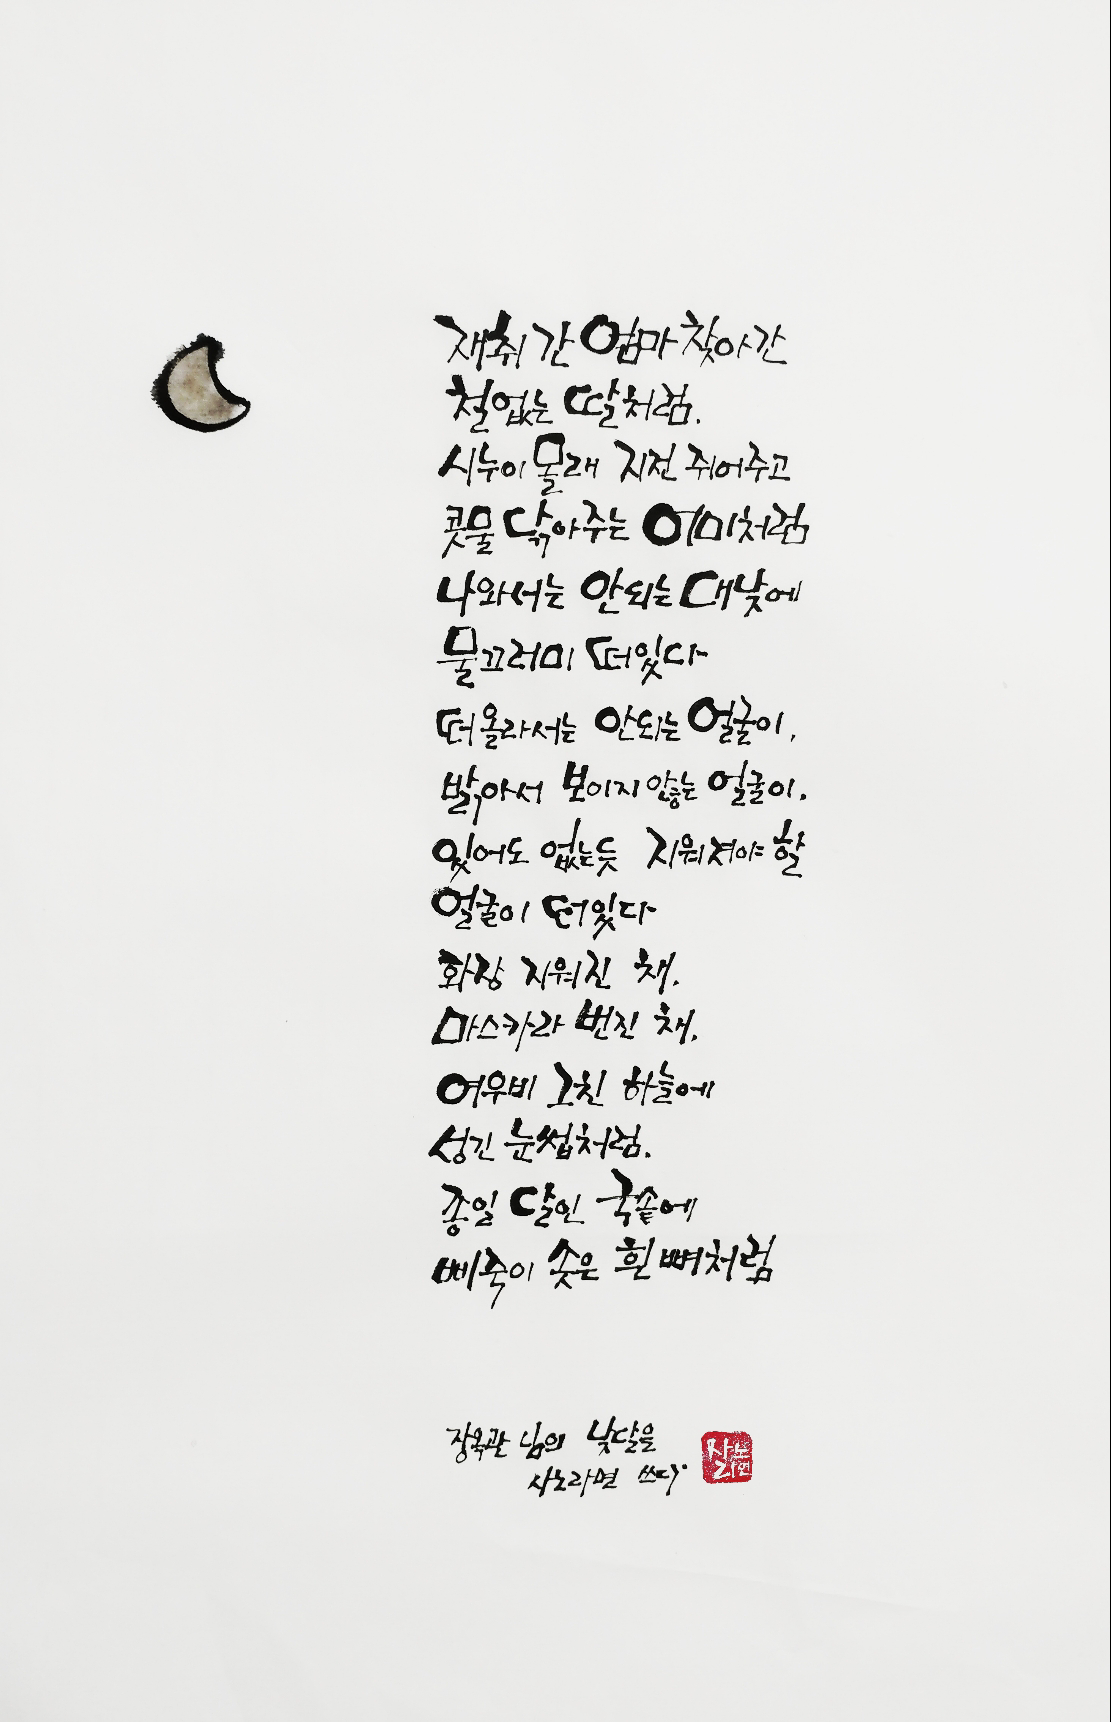 재취 간 엄마 찾아간
철없는 딸처럼.
시누이 몰래 지전 쥐어주고
콧물 닦아주는 어미처럼
나와서는 안되는 대낮에
물끄러미 떠있다
떠올라서는 안되는 얼굴이,
밝아서 보이지 않는 얼굴이.
있어도 없는듯 지워져야 할
얼굴이 떠있다
화장 지워진 채.
마스카라 번진 채.
여우비 그친 하늘에
성긴 눈썹처럼.
종일 달인 국솥에
삐죽이 솟은 흰 뼈처럼
장옥관 님의 낮달을
사노라면 쓰다
사노라면